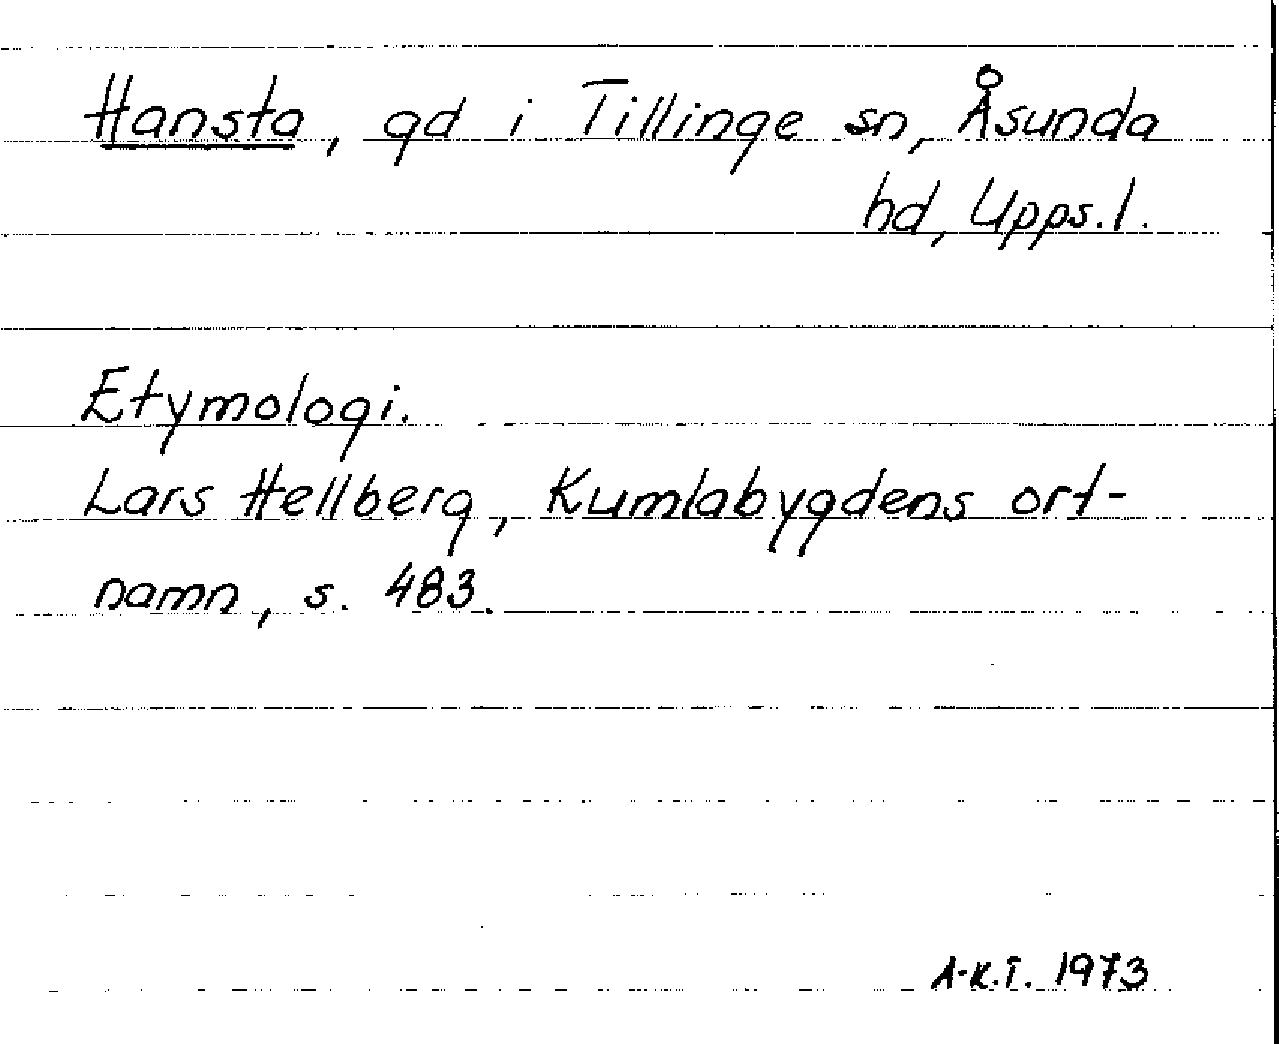 Hansta, gd i Tillinge sn, Åsunda
hd, Upps.l.
Etymologi.
Lars Hellberg, Kumlabygdens ort-
namn, s. 483.
A-K.T. 1973